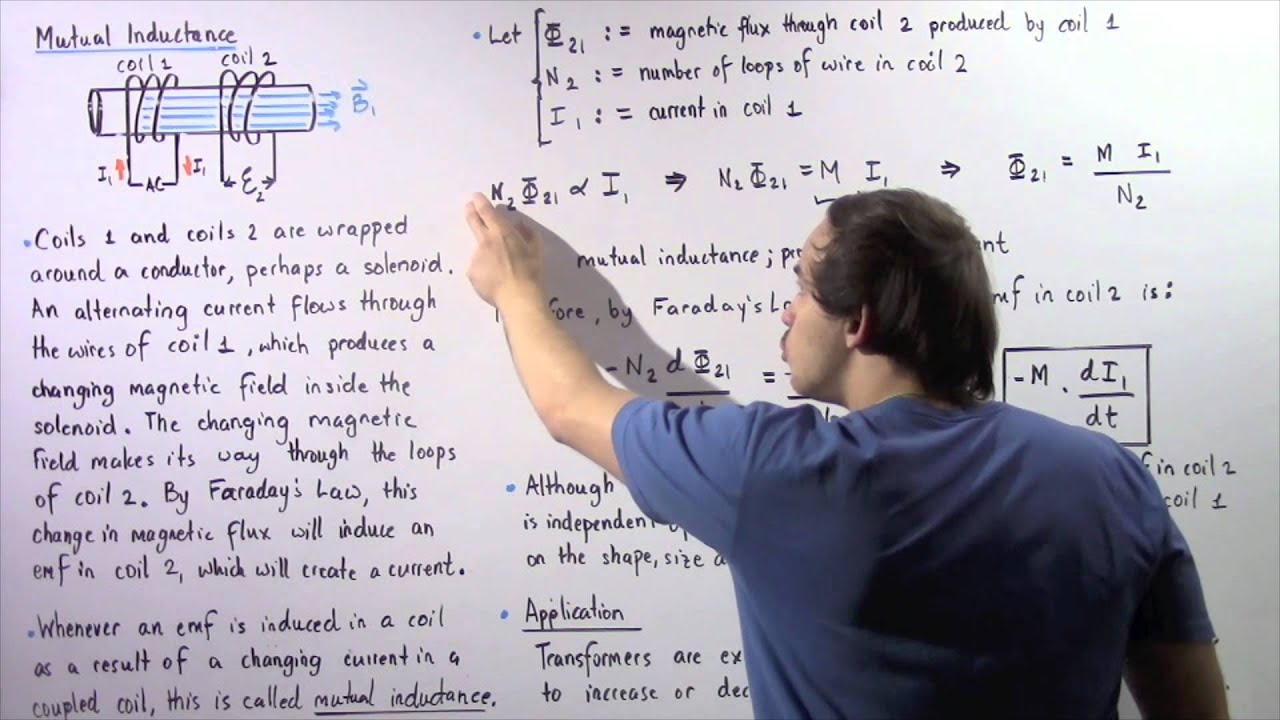 Mutual Inductance
coil 1 coil 2
B₁
I₁ AC I₁ ℰ₂
• Coils 1 and coils 2 are wrapped
around a conductor, perhaps a solenoid.
An alternating current flows through
the wires of coil 1, which produces a
changing magnetic field inside the
solenoid. The changing magnetic
field makes its way through the loops
of coil 2. By Faraday's Law, this
change in magnetic flux will induce an
emf in coil 2, which will create a current.
• Whenever an emf is induced in a coil
as a result of a changing current in a
coupled coil, this is called mutual inductance.
• Let Φ₂₁ := magnetic flux through coil 2 produced by coil 1
N₂ := number of loops of wire in coil 2
I₁ := current in coil 1
N₂Φ₂₁ ∝ I₁ ⇒ N₂Φ₂₁ = M I₁ ⇒ Φ₂₁ = M I₁ / N₂
mutual inductance;
by Faraday's emf in coil 2 is:
-N₂ dΦ₂₁ = -M · dI₁/dt
• Although in coil 2
is independent coil 1
on the shape, size
• Application
Transformers are
to increase or